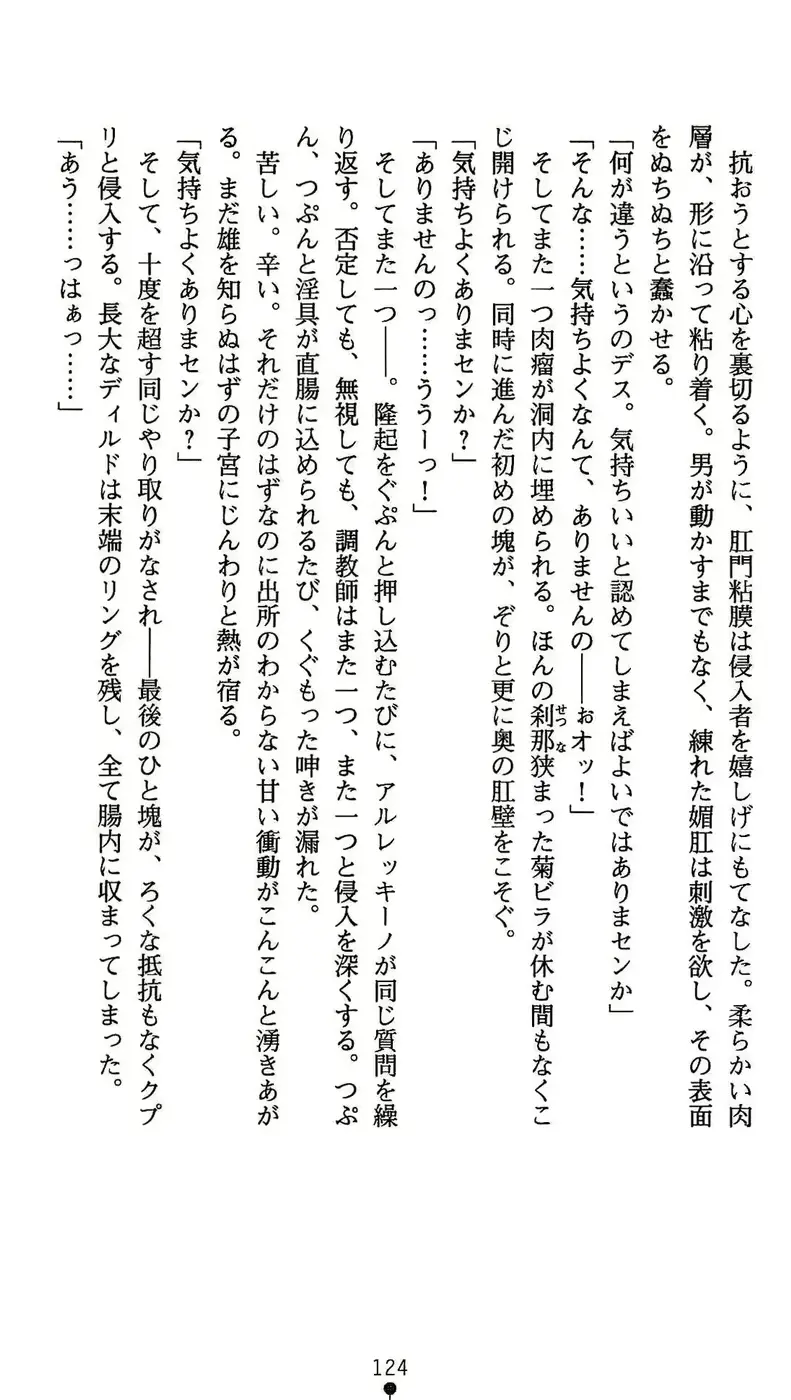 抗おうとする心を裏切るように、肛門粘膜は侵入者を嬉しげにもてなした。柔らかい肉
層が、形に沿って粘り着く。男が動かすまでもなく、練れた媚肛は刺激を欲し、その表面
をぬちぬちと蠢かせる。
「何が違うというのデス。気持ちいいと認めてしまえばよいではありまセンか」
「そんな……気持ちよくなんて、ありませんの――ぉオッ！」
そしてまた一つ肉瘤が洞内に埋められる。ほんの刹那狭まった菊ビラが休む間もなくこ
せつな
じ開けられる。同時に進んだ初めの塊が、ぞりと更に奥の肛壁をこそぐ。
「気持ちよくありまセンか？」
「ありませんのっ……ううーっ！」
そしてまた一つ――。隆起をぐぷんと押し込むたびに、アルレッキーノが同じ質問を繰
り返す。否定しても、無視しても、調教師はまた一つ、また一つと侵入を深くする。つぷ
ん、つぷんと淫具が直腸に込められるたび、くぐもった呻きが漏れた。
苦しい。辛い。それだけのはずなのに出所のわからない甘い衝動がこんこんと湧きあが
る。まだ雄を知らぬはずの子宮にじんわりと熱が宿る。
「気持ちよくありまセンか？」
そして、十度を超す同じやり取りがなされ――最後のひと塊が、ろくな抵抗もなくクプ
リと侵入する。長大なディルドは末端のリングを残し、全て腸内に収まってしまった。
「あう……っはぁっ……」
124